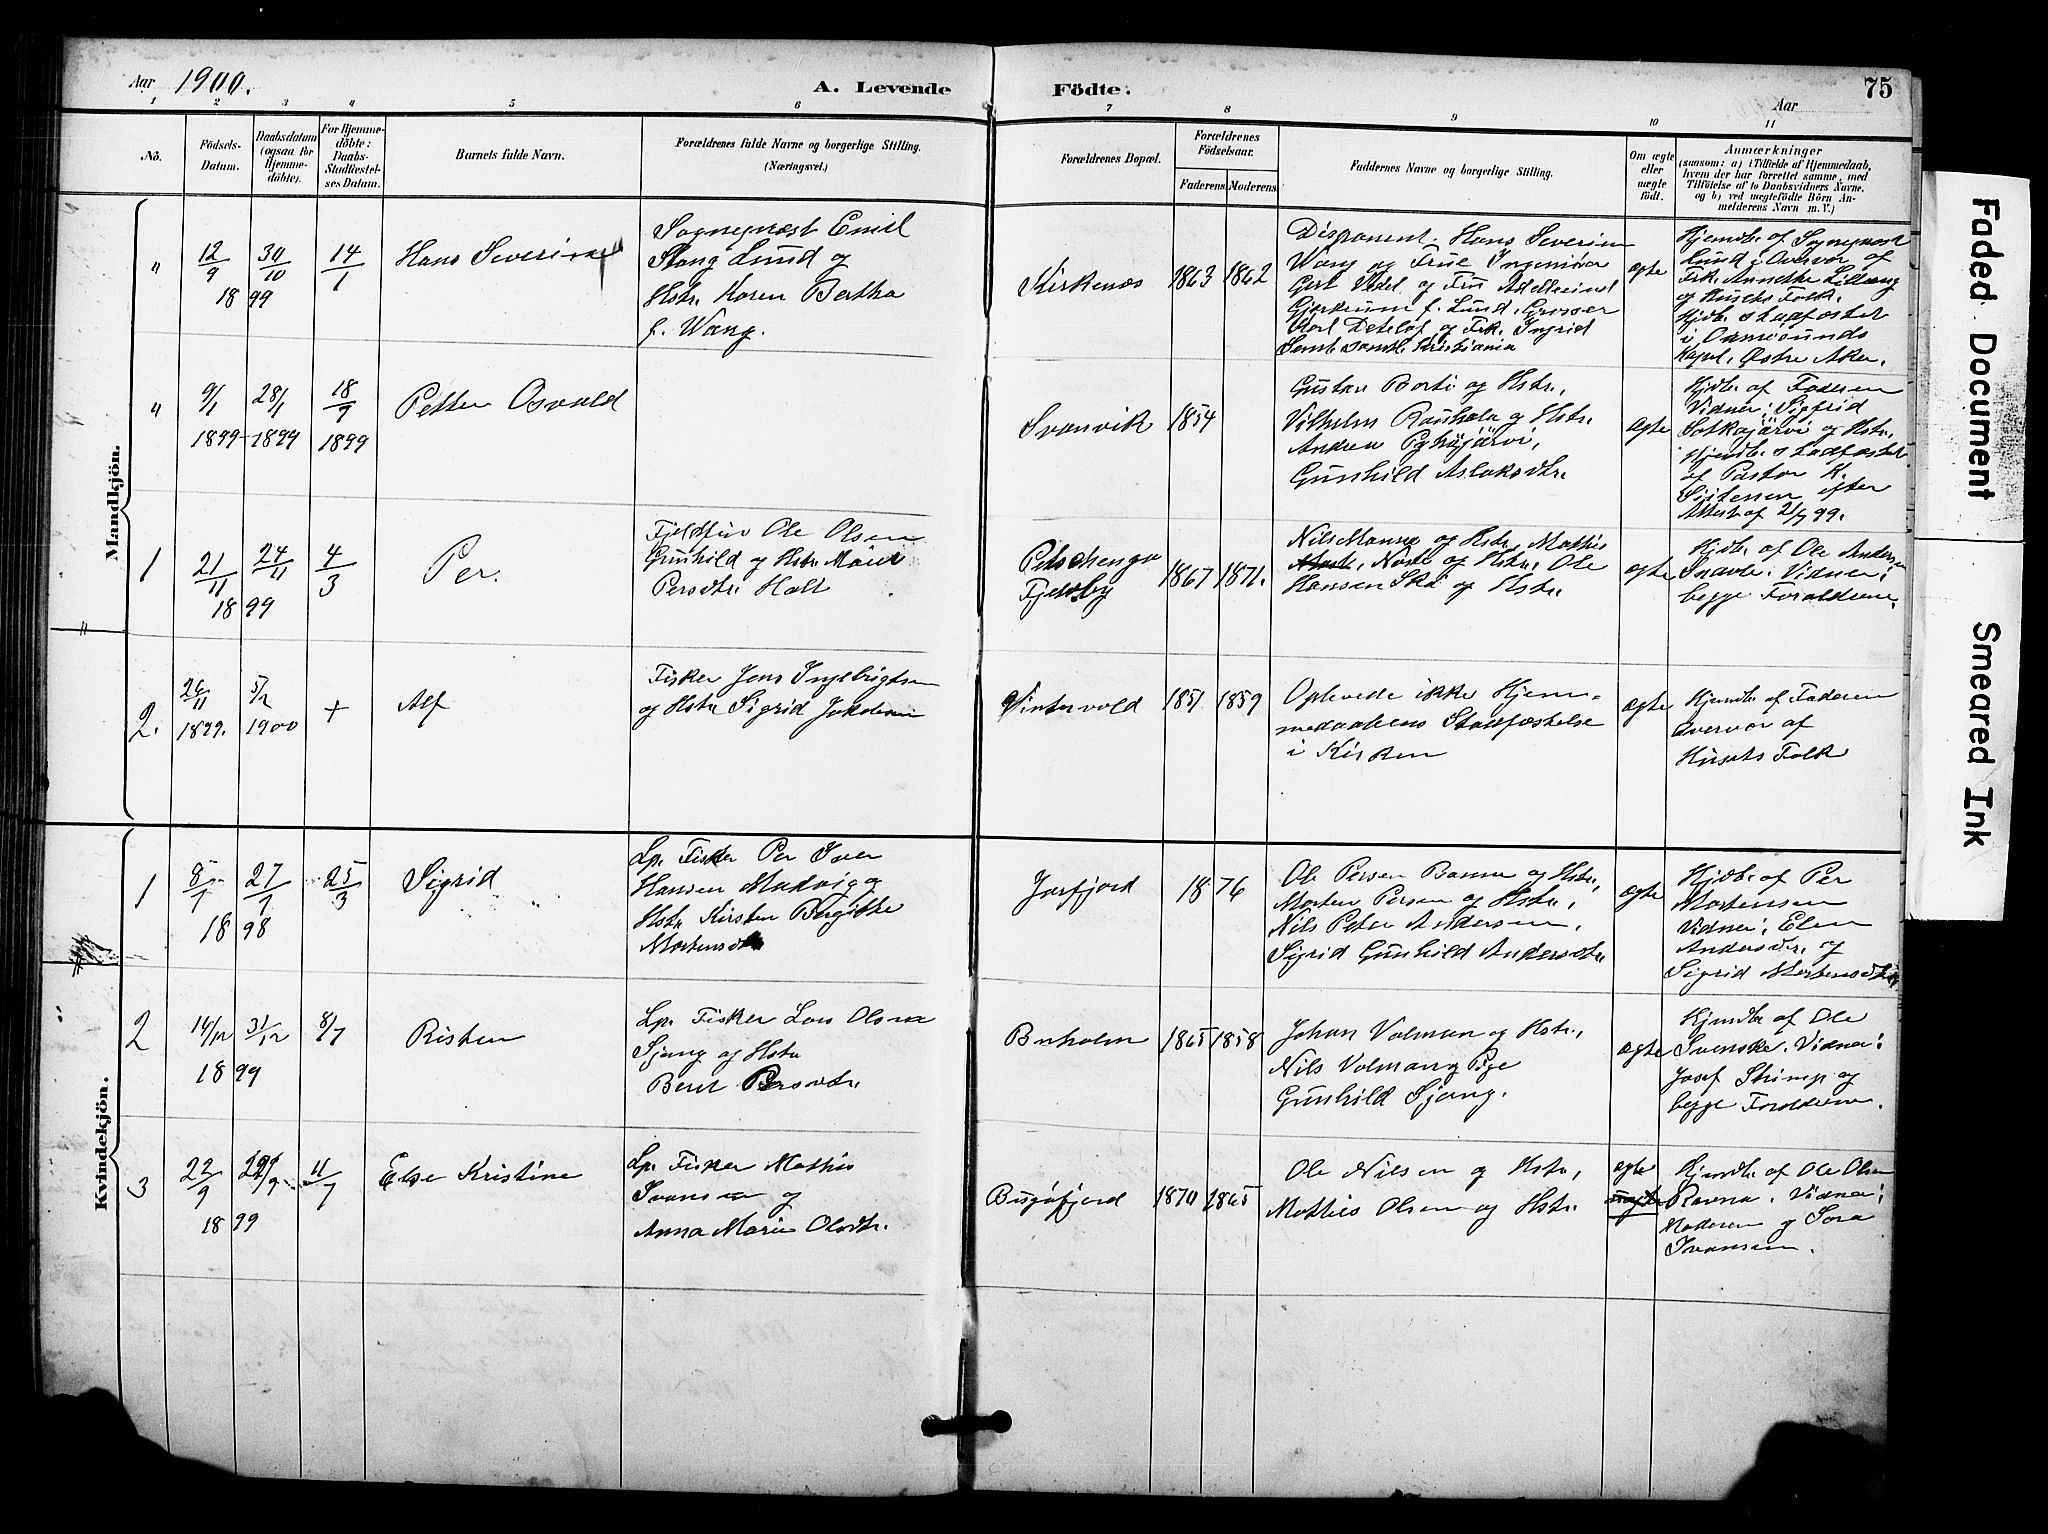 Aar 1900.
A. Levende Födte.
Aar
75
1 2 3 4 5 6 7 8 9 10 11
No.
Födsels-
Datum.
Daabsdatum
(ogsaa for
Hjemme-
döbte).
For Hjemme-
döbte:
Daabs-
Stadfæstel-
ses Datum.
Barnets fulde Navn.
Forældrenes fulde Navne og borgerlige Stilling.
(Næringsvei.)
Forældrenes Bopæl.
Forældrenes
Födselsaar.
Faderens. Moderens.
Faddernes Navne og borgerlige Stilling.
Om ægte
eller
uægte
födt.
Anmærkninger
(saasom: a) i Tilfælde af Hjemmedaab,
hvem der har forrettet samme, med
Tilföielse af to Daabsvidners Navne,
og b) ved uægtefödte Börn An-
melderens Navn m. V.)
Mandkjön.
"
12/9 30/10 14/1
18 99
Hans Severin
Sognepræst Emil
Stang Lund og
Hstr. Karen Bertha
f. Wang.
Kirkenæs
1863 1862
Disponent Hans Severin
Wang og Frue Ingeniör
Gert Vedel og Fru Adelheid
Gjerdrum f. Lund, Grosser
Karl Detlof og Frk. Ingrid
samtl. Kristiania
ægte
Hjemdb. af Sognepræst
Lund i Overvær af
Frk. Annette
og Husets Folk.
Hjdb. stadfæstet
i Ormsunds
Kapel, Østre Aker.
"
9/1 28/1 18/9
1899 1899 1899
Petter Osvald
Svanvik
1854
Gustav Borti og Hstr.,
Vilhelm Rauhala og Hstr.
Andrea Pyhäjärvi,
Gunhild Aslaksdtr.
ægte
Hjdb. af Faderen
Vidner: Sigfrid
Sotkajärvi og Hstr.
Hjemdb. stadfæstet
af Pastor K.
efter
Attest af 21/9 99.
1
21/11 24/11 4/3
18 99
Per.
Fjeldfin Ole Olsen
Gunhild og Hstr. Marit
Persdtr. Halt
Petschenga
Fjeldby
1867 1871.
Nils Manna og Hstr., Mathis
Noste og Hstr., Ole
Hansen Skå og Hstr.
ægte
Hjdb. af Ole Andersen
Snavle. Vidner:
begge Forældrene.
2.
26/11 5/2 +
1899. 1900
Alf
Fisker Jens Ingebrigtsen
og Hstr. Sigrid Jakobsen
Vintervold
1851 1859
Oplevede ikke Hjem-
medaabens Stadfæstelse
i Kirken
ægte
Hjemdb. af Faderen
Overvær af
Husets Folk
Kvindekjön.
1
8/1 27/1 25/3
18 98
Sigrid
Lp. Fisker Per Iver
Hansen Madvig og
Hstr. Kirsten Birgitte
Mortensdtr.
Jarfjord
18 76
Ole Persen Banna og Hstr.,
Morten Persen og Hstr.,
Nils Peter Andersen,
Sigrid Gunhild Andersdtr.
ægte
Hjdb. af Per
Mortensen
Vidner: Elen
Andersdtr. og
Sigrid Mortensdtr.
2
14/12 31/12 8/7
18 99
Risten
Lp. Fisker Lars Olsen
Sjang og Hstr.
Berit Persdtr.
Bnholm
1865 1858
Johan Valman og Hstr.,
Nils Valman og Pige
Gunhild Sjang.
ægte
Hjemdb. af Ole
Svenske. Vidner:
Josef Skimp og
begge Forældrene.
3
22/9 29/9 11/7
18 99
Else Kristine
Lp. Fisker Mathis
Ivarsen og
Anna Marie Olsdtr.
Bugöfjord
1870 1865
Ole Nilsen og Hstr.,
Mathis Olsen og Hstr.
ægte
uægte
Hjemdb. af Ole Olsen
Ravna. Vidner:
Moderen og Sara
Ivarsen.
Faded Document
Smeared Ink